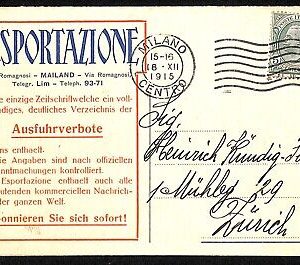 SPORTAZIONE
Romagnosi - MAILAND - Via Romagnosi
Telegr. Lim - Teleph. 93-71
e einzige Zeitschriftwelche ein voll-
diges, deutliches Verzeichnis der
Ausfuhrverbote
ns enthaelt.
ie Angaben sind nach offiziellen
nntmachungen kontrolliert.
Esportazione enthaelt auch alle
utenden kommerziellen Nachrich-
der ganzen Welt.
onnieren Sie sich sofort!
MILANO
15-16
18·XII
1915
CENTRO
Sig.
Heinrich Kündig
Mühlbg 29
Zürich